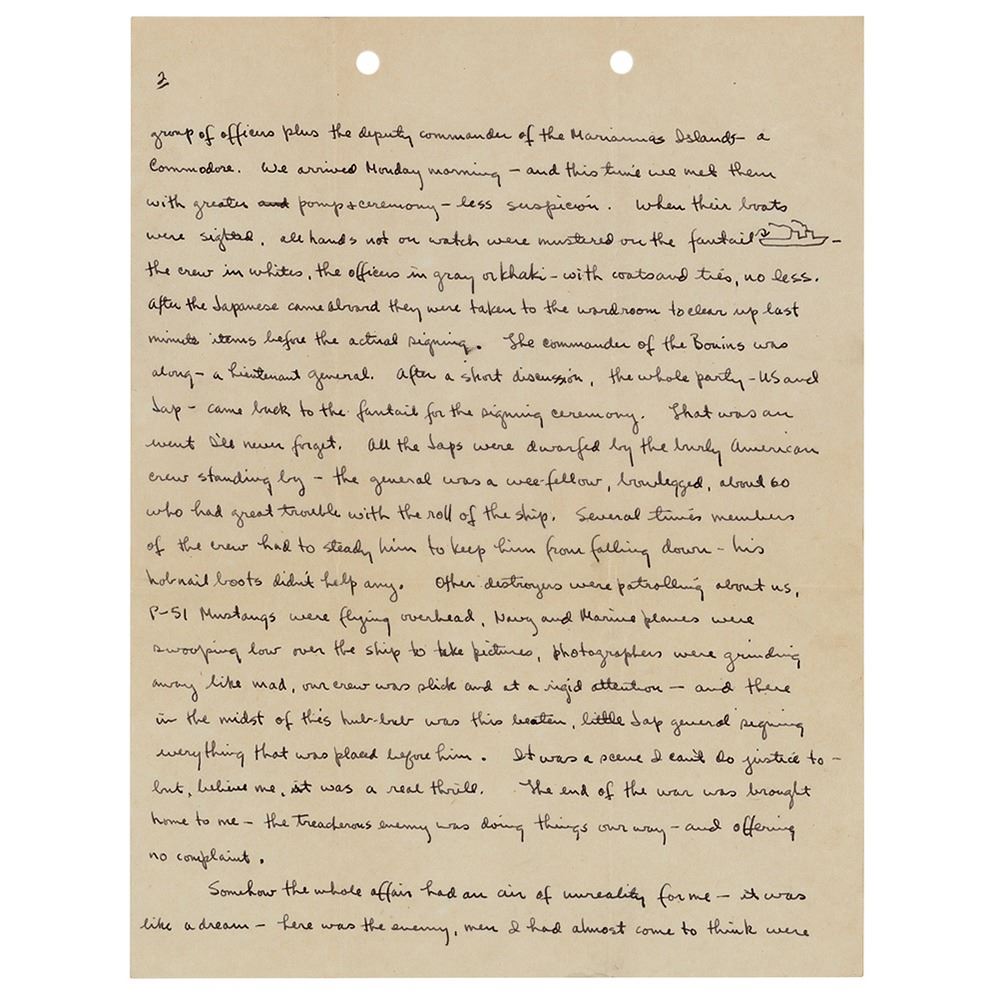 2
group of officers plus the deputy commander of the Mariannas Islands - a
Commodore. We arrived Monday morning - and this time we met them
with greater and pomp & ceremony - less suspicion. When their boats
were sighted, all hands not on watch were mustered on the fantail -
the crew in whites, the officers in gray or khaki - with coats and ties, no less.
After the Japanese came aboard they were taken to the wardroom to clear up last
minute items before the actual signing. The commander of the Bonins was
along - a lieutenant general. After a short discussion, the whole party - US and
Jap - came back to the fantail for the signing ceremony. That was an
event I'll never forget. All the Japs were dwarfed by the burly American
crew standing by - the general was a wee-fellow, bowlegged, about 60
who had great trouble with the roll of the ship. Several times members
of the crew had to steady him to keep him from falling down - his
hobnail boots didn't help any. Other destroyers were patrolling about us,
P-51 Mustangs were flying overhead, Navy and Marine planes were
swooping low over the ship to take pictures, photographers were grinding
away like mad, our crew was slick and at a rigid attention - and there
in the midst of this hub-bub was this beaten, little Jap general signing
everything that was placed before him. It was a scene I can't do justice to -
but, believe me, it was a real thrill. The end of the war was brought
home to me - the treacherous enemy was doing things our way - and offering
no complaint.
Somehow the whole affair had an air of unreality for me - it was
like a dream - here was the enemy, men I had almost come to think were